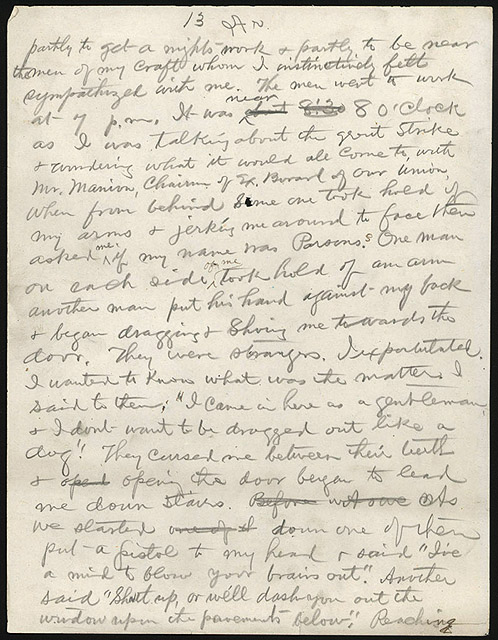 13 A.R.
partly to get a nights work & partly to be near
the men of my craft whom I instinctively felt
sympathized with me. The men went to work
at 7 p.m. It was near 8 O'Clock
as I was talking about the great Strike
& wondering what it would all come to, with
Mr. Manion, Chairm of Ex. Board of our Union,
when from behind some one took hold of
my arms & jerking me around to face them
asked me if my name was Parsons. One man
on each side of me took hold of an arm
another man put his hand against my back
& began dragging & shoving me towards the
door. They were strangers. I expostulated.
I wanted to know what was the matter. I
said to them; "I came in here as a gentleman
& I dont want to be dragged out like a
dog". They cursed me between their teeth
& opend opening the door began to lead
me down stairs. Before As
we started one of down one of them
put a pistol to my head & said "I've
a mind to blow your brains out". Another
said "Shut up, or we'll dash you out the
window upon the pavements below". Reaching